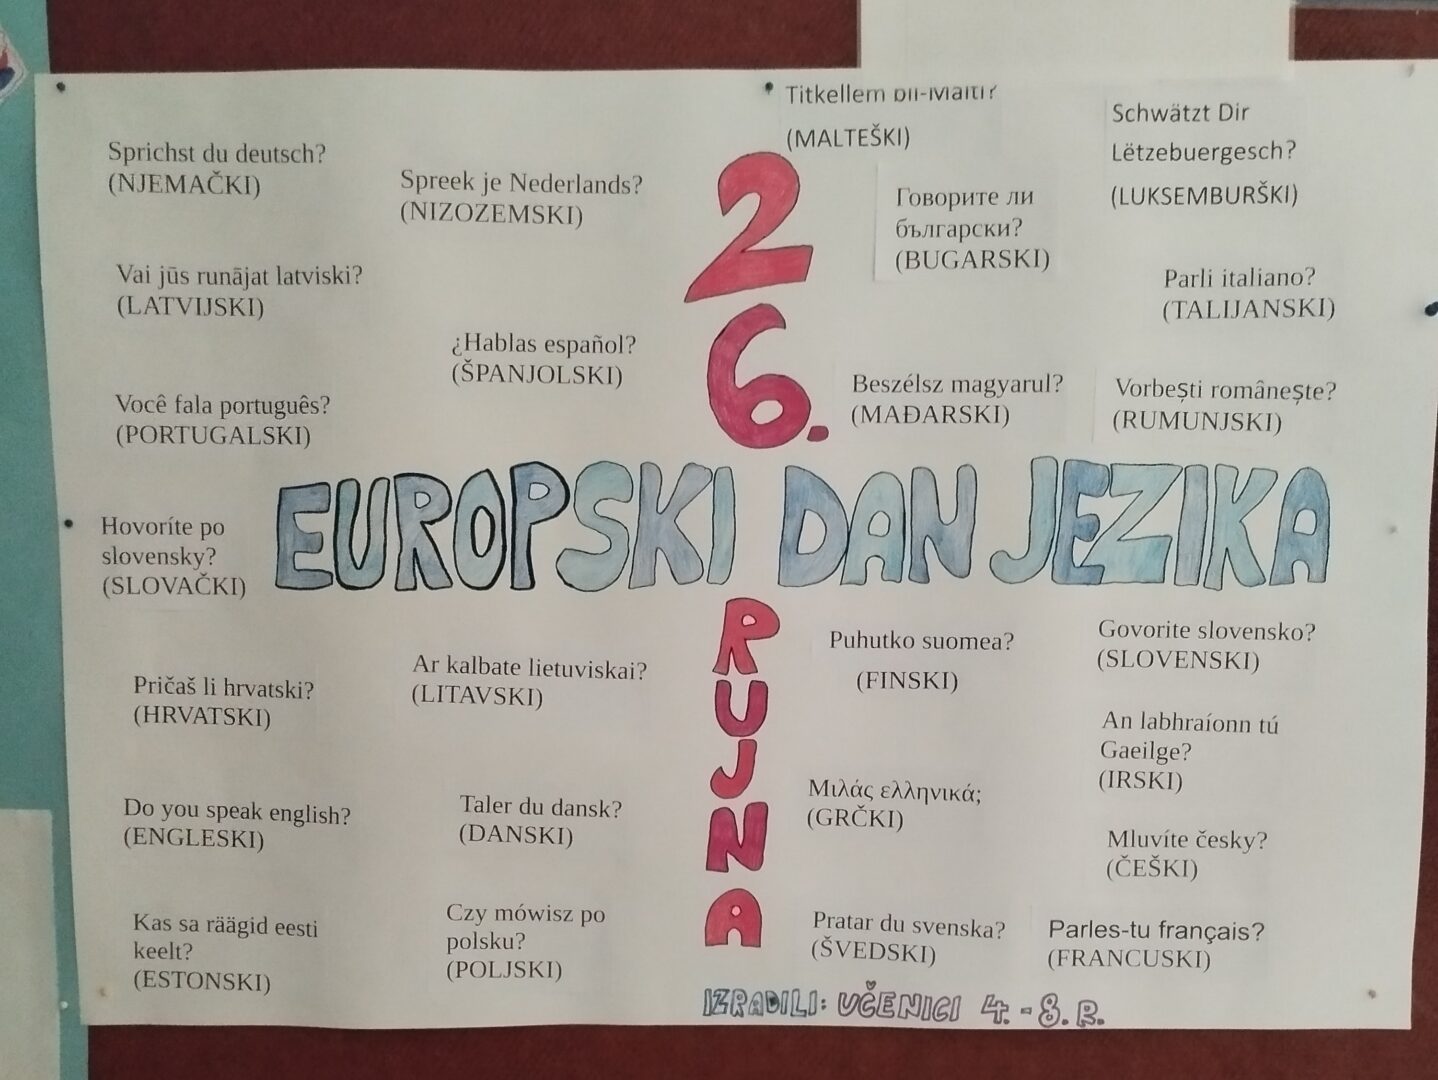 Sprichst du deutsch?
(NJEMAČKI)
Spreek je Nederlands?
(NIZOZEMSKI)
Vai jūs runājat latviski?
(LATVIJSKI)
¿Hablas español?
(ŠPANJOLSKI)
Você fala português?
(PORTUGALSKI)
Titkellem bil-Malti?
(MALTEŠKI)
Schwätzt Dir
Lëtzebuergesch?
(LUKSEMBURŠKI)
Говорите ли
български?
(BUGARSKI)
Parli italiano?
(TALIJANSKI)
Beszélsz magyarul?
(MAĐARSKI)
Vorbești românește?
(RUMUNJSKI)
26.
EUROPSKI DAN JEZIKA
RUJNA
Hovoríte po
slovensky?
(SLOVAČKI)
Pričaš li hrvatski?
(HRVATSKI)
Ar kalbate lietuviskai?
(LITAVSKI)
Do you speak english?
(ENGLESKI)
Taler du dansk?
(DANSKI)
Kas sa räägid eesti
keelt?
(ESTONSKI)
Czy mówisz po
polsku?
(POLJSKI)
Puhutko suomea?
(FINSKI)
Govorite slovensko?
(SLOVENSKI)
An labhraíonn tú
Gaeilge?
(IRSKI)
Μιλάς ελληνικά;
(GRČKI)
Mluvíte česky?
(ČEŠKI)
Pratar du svenska?
(ŠVEDSKI)
Parles-tu français?
(FRANCUSKI)
IZRADILI: UČENICI 4. - 8. R.